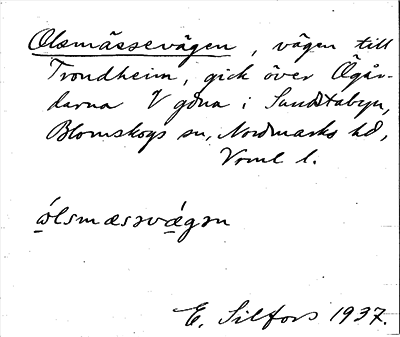 Olsmässevägen, vägen till
Trondheim, gick över Ögår-
darna V gdna i Sundstabyn,
Blomskogs sn, Nordmarks hd,
Vrml l.
ólsmæsəvǽgən
E. Silfors 1937.